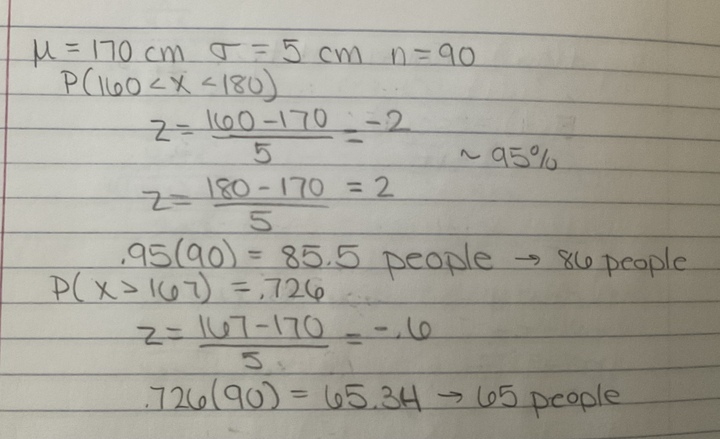 μ = 170 cm σ = 5 cm n = 90
P(160 < x < 180)
z = (160 - 170)/5 = -2
~ 95%
z = (180 - 170)/5 = 2
.95(90) = 85.5 people → 86 people
P(x > 167) = .726
z = (167 - 170)/5 = -.6
.726(90) = 65.34 → 65 people